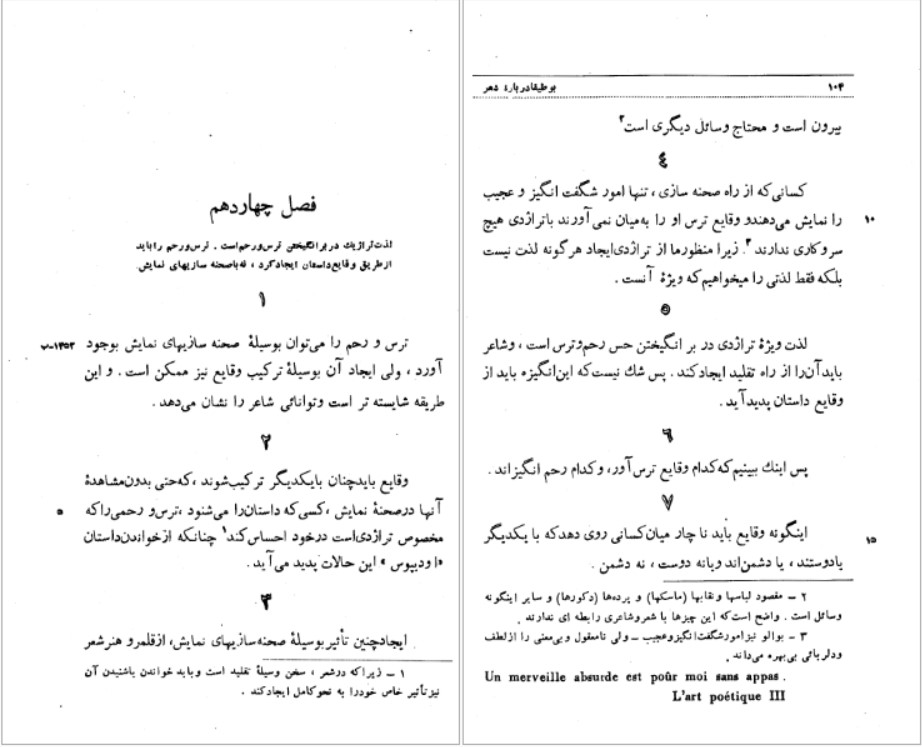 فصل چهاردهم
لذت تراژیك در برانگیختن ترس و رحم است . ترس و رحم را باید
از طریق وقایع داستان ایجاد کرد ، نه با صحنه سازیهای نمایش.
۱
ترس و رحم را می‌توان بوسیلهٔ صحنه سازیهای نمایش بوجود ۱۴۵۳-ب
آورد ، ولی ایجاد آن بوسیلهٔ ترکیب وقایع نیز ممکن است . و این
طریقه شایسته تر است و توانائی شاعر را نشان می‌دهد .
۲
وقایع باید چنان بایکدیگر ترکیب شوند ، که حتی بدون مشاهدهٔ
آنها در صحنهٔ نمایش ، کسی که داستان را می‌شنود ، ترس و رحمی را که ۵
مخصوص تراژدی است در خود احساس کند۱ چنانکه از خواندن داستان
«اودیپوس» این حالات پدید می‌آید .
۳
ایجاد چنین تأثیر بوسیلهٔ صحنه سازیهای نمایش، از قلمرو هنر شعر
۱ – زیرا که در شعر ، سخن وسیلهٔ تقلید است و باید خواندن یا شنیدن آن
نیز تأثیر خاص خود را به نحو کامل ایجاد کند .
۱۰۴ بوطیقا در بارهٔ شعر
بیرون است و محتاج وسائل دیگری است۲
۴
کسانی که از راه صحنه سازی ، تنها امور شگفت انگیز و عجیب
را نمایش می‌دهند و وقایع ترس او را به میان نمی‌آورند با تراژدی هیچ ۱۰
سر و کاری ندارند ۳. زیرا منظور ما از تراژدی ایجاد هر گونه لذت نیست
بلکه فقط لذتی را میخواهیم که ویژهٔ آنست .
۵
لذت ویژهٔ تراژدی در بر انگیختن حس رحم و ترس است ، و شاعر
باید آن را از راه تقلید ایجاد کند . پس شك نیست که این انگیزه باید از
وقایع داستان پدید آید .
۶
پس اینك ببینیم که کدام وقایع ترس آور، و کدام رحم انگیز اند .
۷
اینگونه وقایع باید ناچار میان کسانی روی دهد که با یکدیگر ۱۵
یا دوستند ، یا دشمن اند و یا نه دوست ، نه دشمن .
۲ – مقصود لباسها و نقابها (ماسکها) و پرده‌ها (دکورها) و سایر اینگونه
وسائل است . واضح است که این چیزها با شعر و شاعری رابطه ای ندارند .
۳ – بوالو نیز امور شگفت انگیز و عجیب – ولی نامعقول و بی‌معنی را از لطف
و دلربائی بی‌بهره می‌داند .
Un merveille absurde est poûr moi sans appas .
L'art poétique III